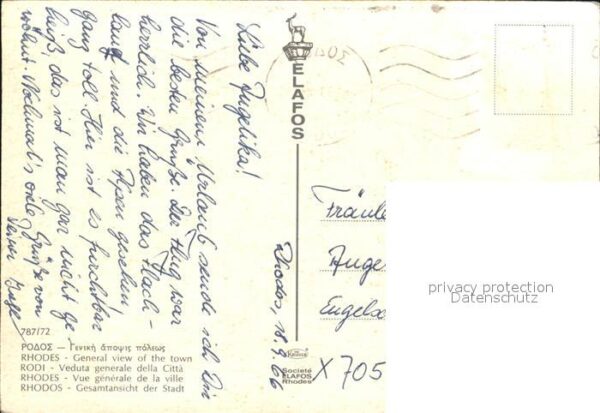 Rhodos, 18.9.66
Liebe Angelika!
Von meinem Urlaub sende ich Dir
die besten Grüße. Der Flug war
herrlich. Wir haben das Flach-
land und die Alpen gesehen!
ganz toll. Hier ist es furchtbar
heiß, das ist man gar nicht ge
wöhnt. Nochmal's viele Grüße von
Deiner
787/72
ΡΟΔΟΣ — Γενική ἄποψις πόλεως
RHODES - General view of the town
RODI - Veduta generale della Città
RHODES - Vue générale de la ville
RHODOS - Gesamtansicht der Stadt
ELAFOS
Société
ELAFOS
Rhodes
Fräule
Ange
Engels
X 705
privacy protection
Datenschutz